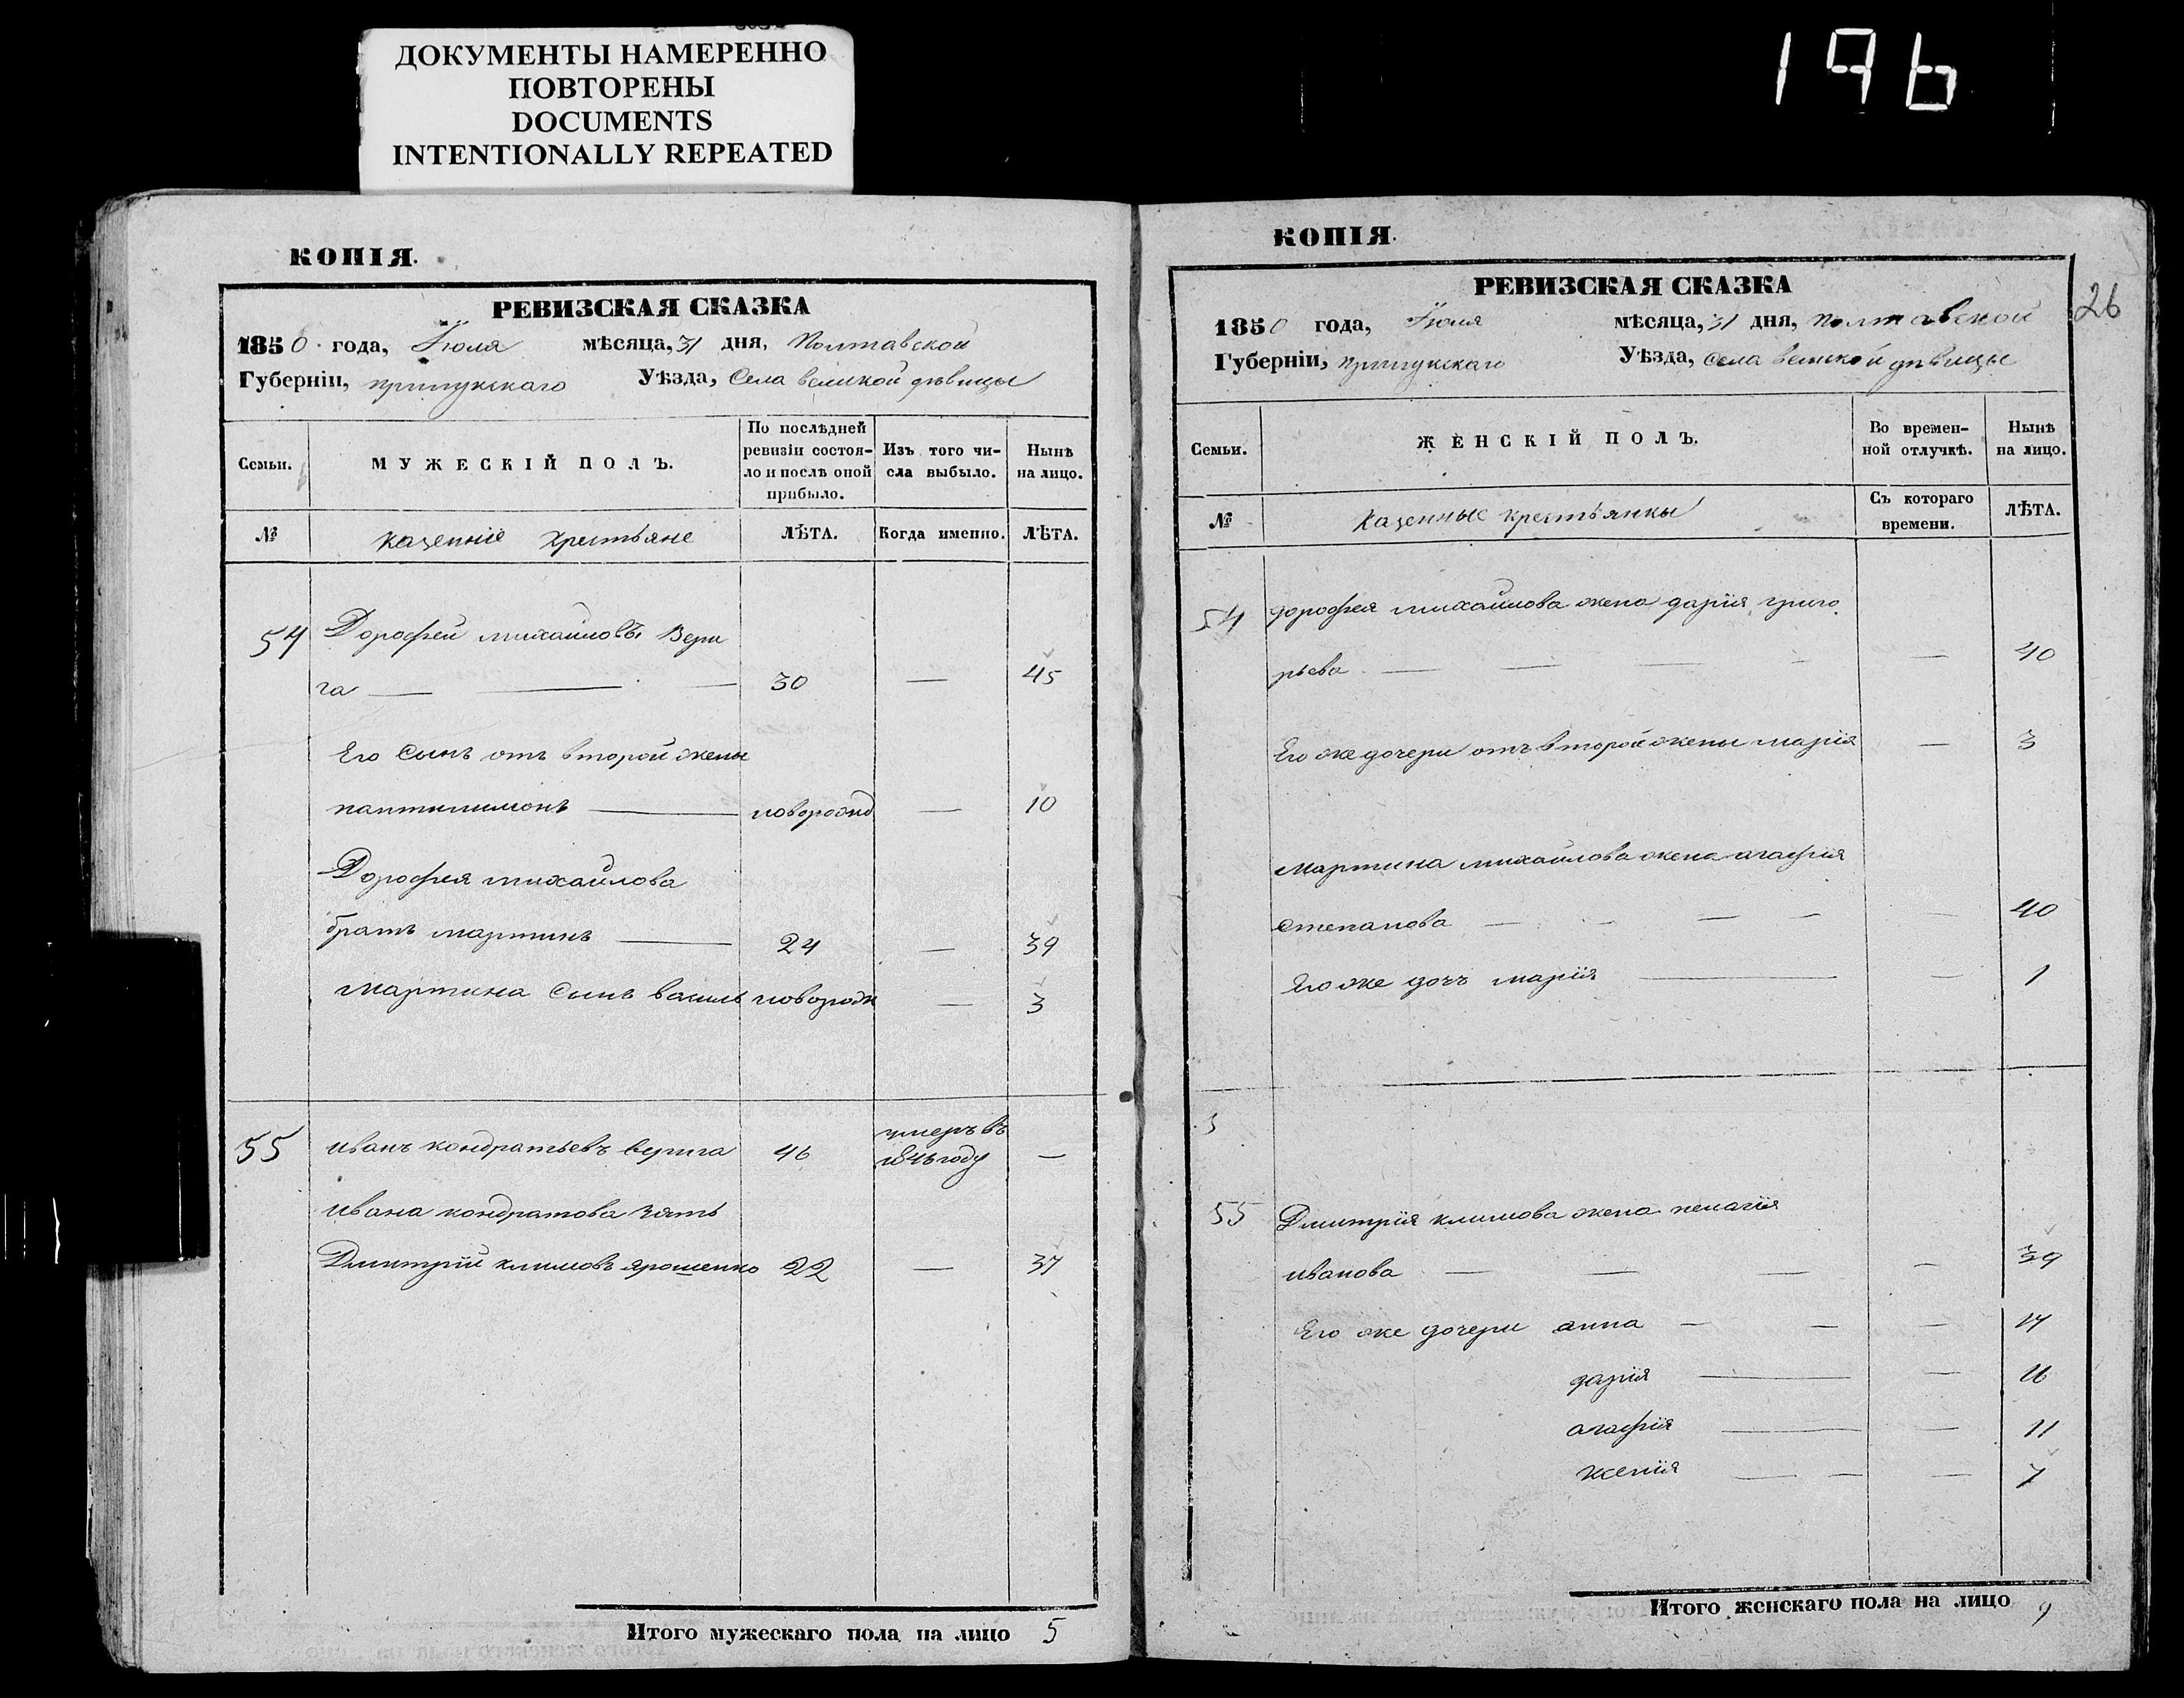 ДОКУМЕНТЫ НАМЕРЕННО
ПОВТОРЕНЫ
DOCUMENTS
INTENTIONALLY REPEATED
196
КОПІЯ.
РЕВИЗСКАЯ СКАЗКА
1850 года, Іюля мѣсяца, 31 дня, Полтавской
Губерніи, прилукскаго Уѣзда, Села великой дѣвицы
Семьи. МУЖЕСКІЙ ПОЛЪ. По послѣдней ревизіи состоя-ло и послѣ оной прибыло. Изъ того чи-сла выбыло. Нынѣ на лицо.
№ казенніе крестьяне ЛѢТА. Когда именно. ЛѢТА.
54 Дорофей михайловъ Вери
га — 30 — 45
Его Сынъ отъ второй жены
пантилимонъ — новорожд — 10
Дорофея михайлова
братъ мартинъ — 24 — 39
Мартина Сынъ василь новорожд — 3
55 иванъ кондратьевъ верига 46 умеръ въ 1846 году —
ивана кондратова зять
Дмитрій климовъ ярошенко 22 — 37
Итого мужескаго пола на лицо 5
КОПІЯ.
26
РЕВИЗСКАЯ СКАЗКА
1850 года, Іюля мѣсяца, 31 дня, полтавской
Губерніи, прилукскаго Уѣзда, Села великой дѣвицы
Семьи. ЖЕНСКІЙ ПОЛЪ. Во времен-ной отлучкѣ. Нынѣ на лицо.
№ казенные крестьянкы Съ котораго времени. ЛѢТА.
54 дорофея михайлова жена дарія григо
рьева — — 40
Его же дочери отъ второй жены марія — 3
Мартина михайлова жена агафия
степанова — — 40
Его же дочъ марія — — 1
55 Дмитрія климова жена пелагія
иванова — — 39
Его же дочери анна — — 17
дарія — — 16
агафія — — 11
ксенія — — 7
Итого женскаго пола на лицо 9